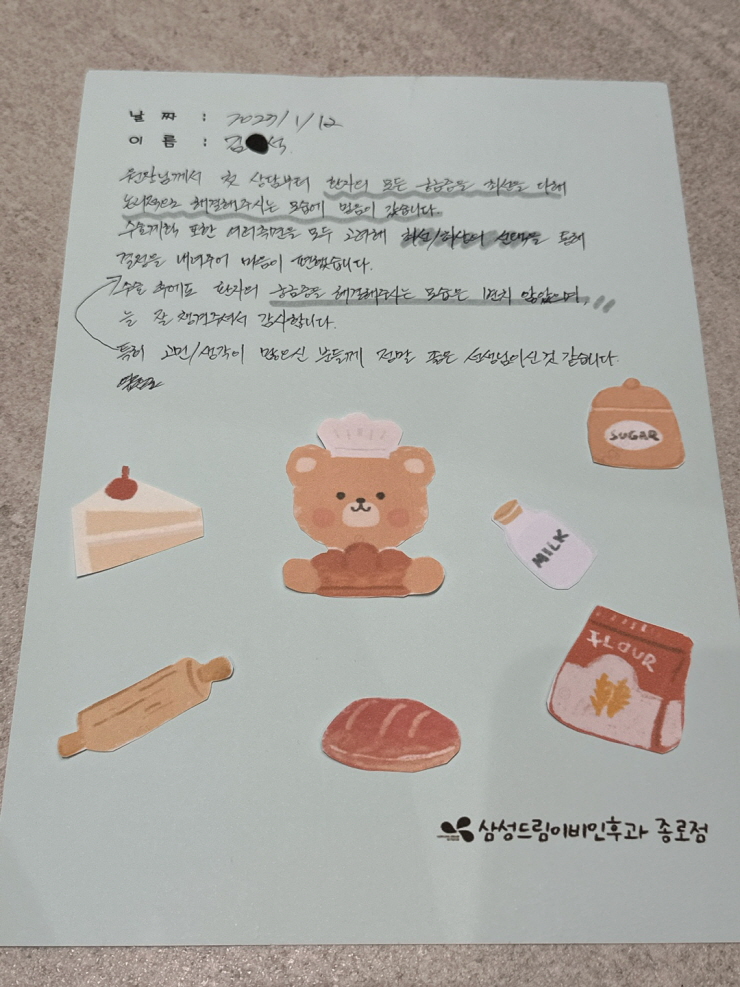 날 짜 : 2023/1/12
이 름 : 김 석
원장님께서 첫 상담부터 환자의 모든 궁금증을 최선을 다해
논리적으로 해결해주시는 모습에 믿음이 갔습니다.
수술계획 또한 여러측면을 모두 고려해 최선/최상의 선택을 통해
결정을 내려주어 마음이 편했습니다.
수술 후에도 환자의 궁금증을 해결해주시는 모습은 변치 않았으며,
늘 잘 챙겨주셔서 감사합니다.
특히 고민/생각이 많으신 분들께 정말 좋은 선생님이신 것 같습니다.
SUGAR
MILK
FLOUR
삼성드림이비인후과 종로점